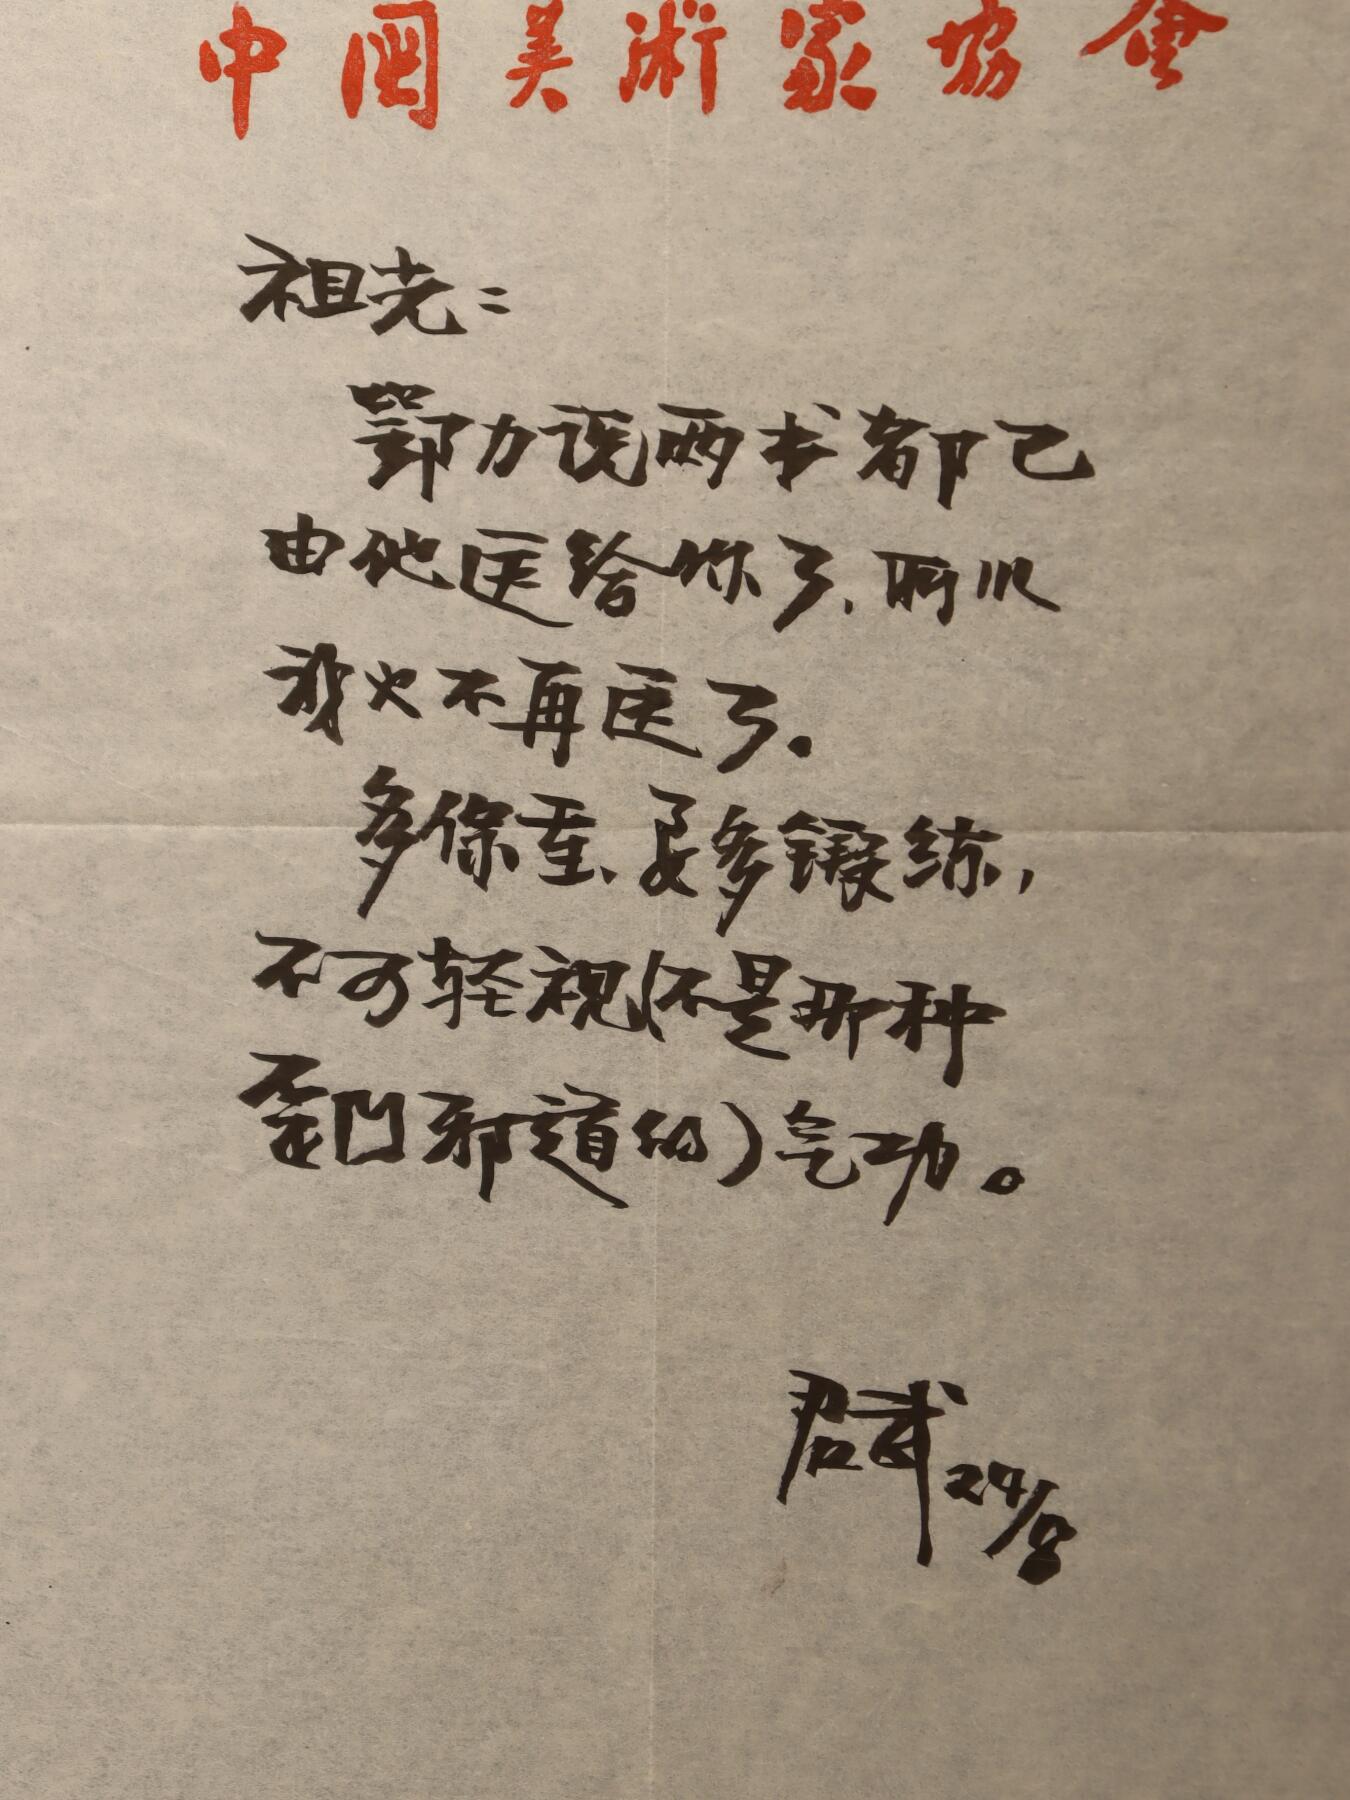 中國美術家協會
祖光：
鄂力说两书都已
由他送给你了，所以
我火不再送了。
多保重、要多锻练，
不可轻视（不是那种
歪门邪道的）气功。
君武 24/8